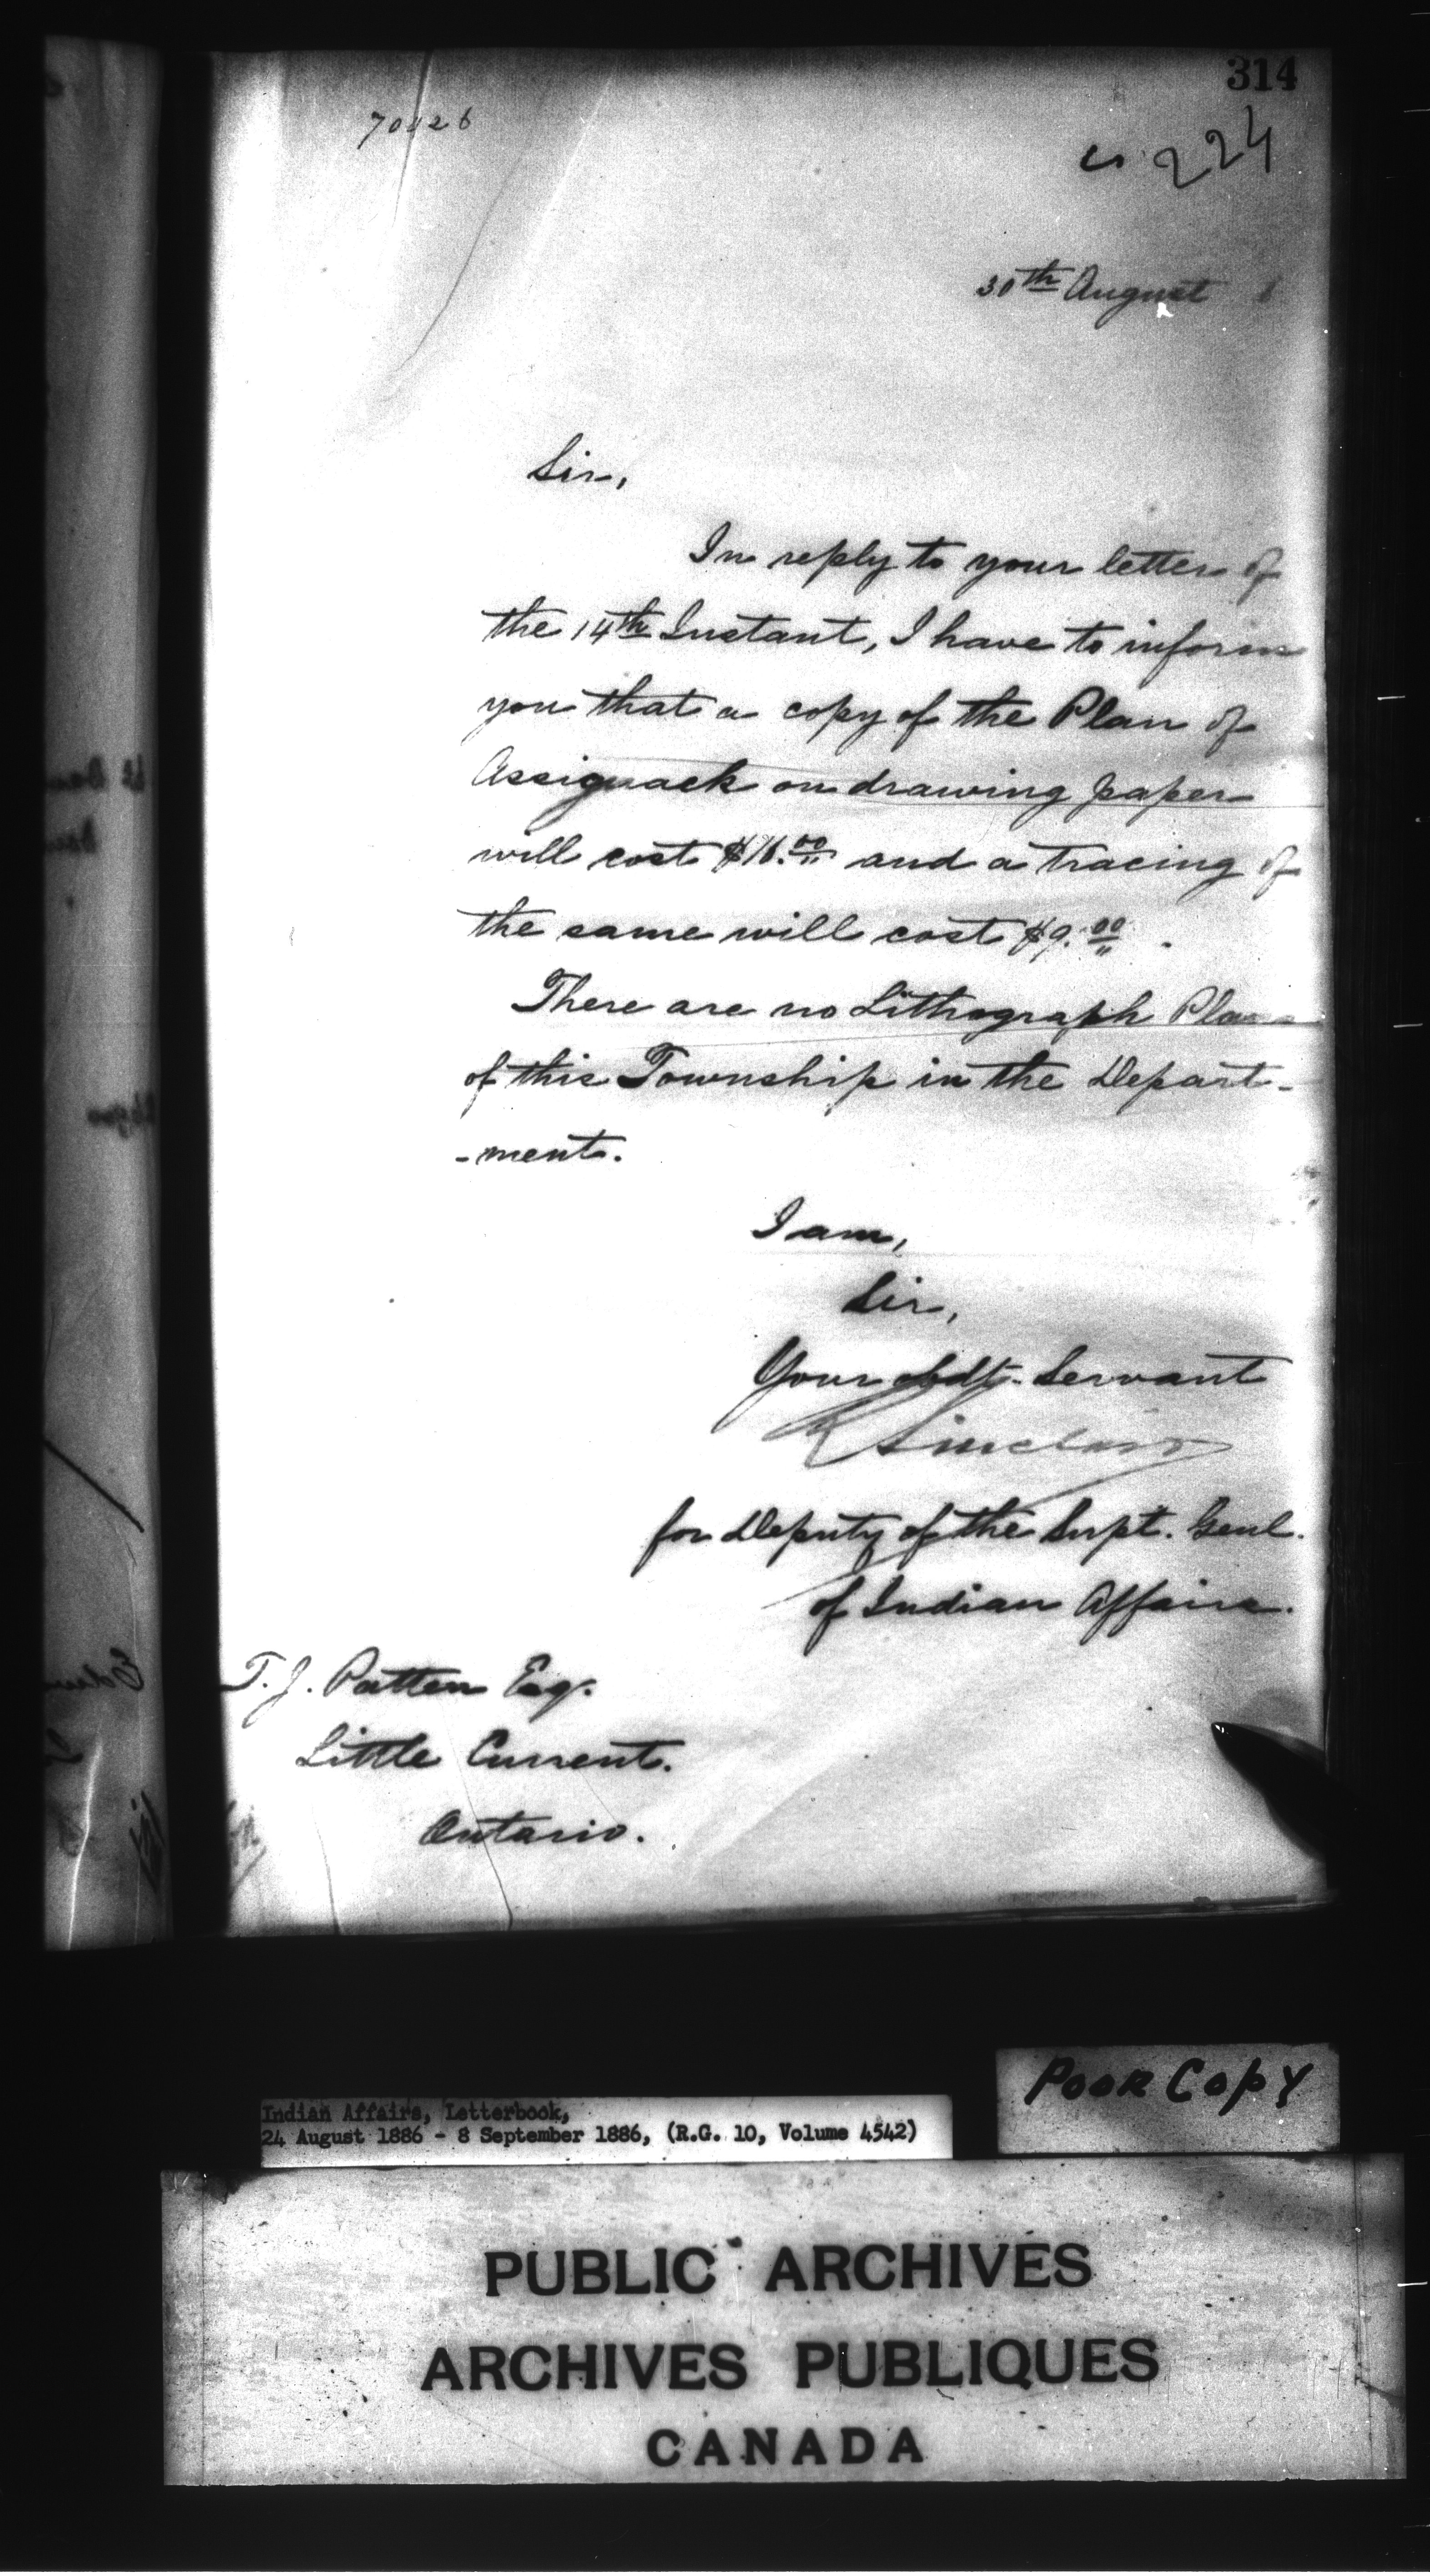 314
224
30th August 6
Sir,
In reply to your letter of
the 14th Instant, I have to inform
you that a copy of the Plan of
Assignack on drawing paper
will cost $16.00 and a tracing of
the same will cost $9.00.
There are no Lithograph Plans
of this Township in the Depart-
-ment.
I am,
Sir,
Your obdt. Servant
R Sinclair
for Deputy of the Supt. Genl.
of Indian Affairs.
T. J. Patten Esq.
Little Current.
Ontario.
Poor Copy
Indian Affairs, Letterbook,
24 August 1886 - 8 September 1886, (R.G. 10, Volume 4542)
PUBLIC ARCHIVES
ARCHIVES PUBLIQUES
CANADA